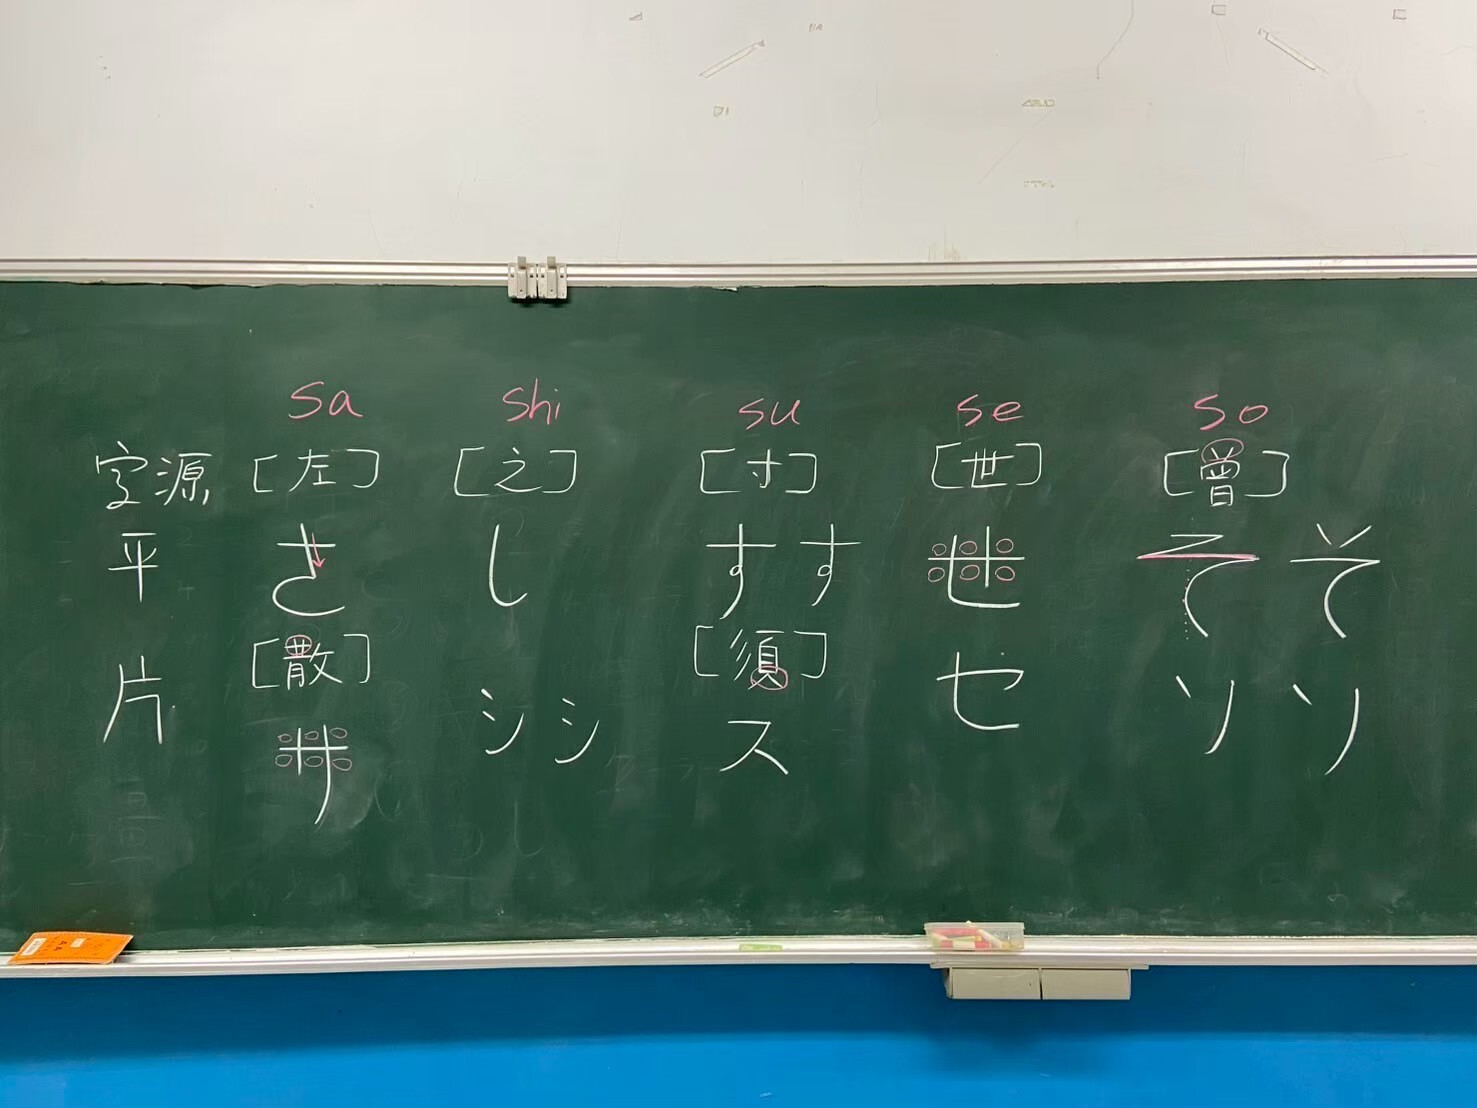 sa shi su se so
字源 [左] [之] [寸] [世] [曽]
平 さ し す す せ そ そ
[散] [須]
片 サ シ シ ス セ ソ ソ